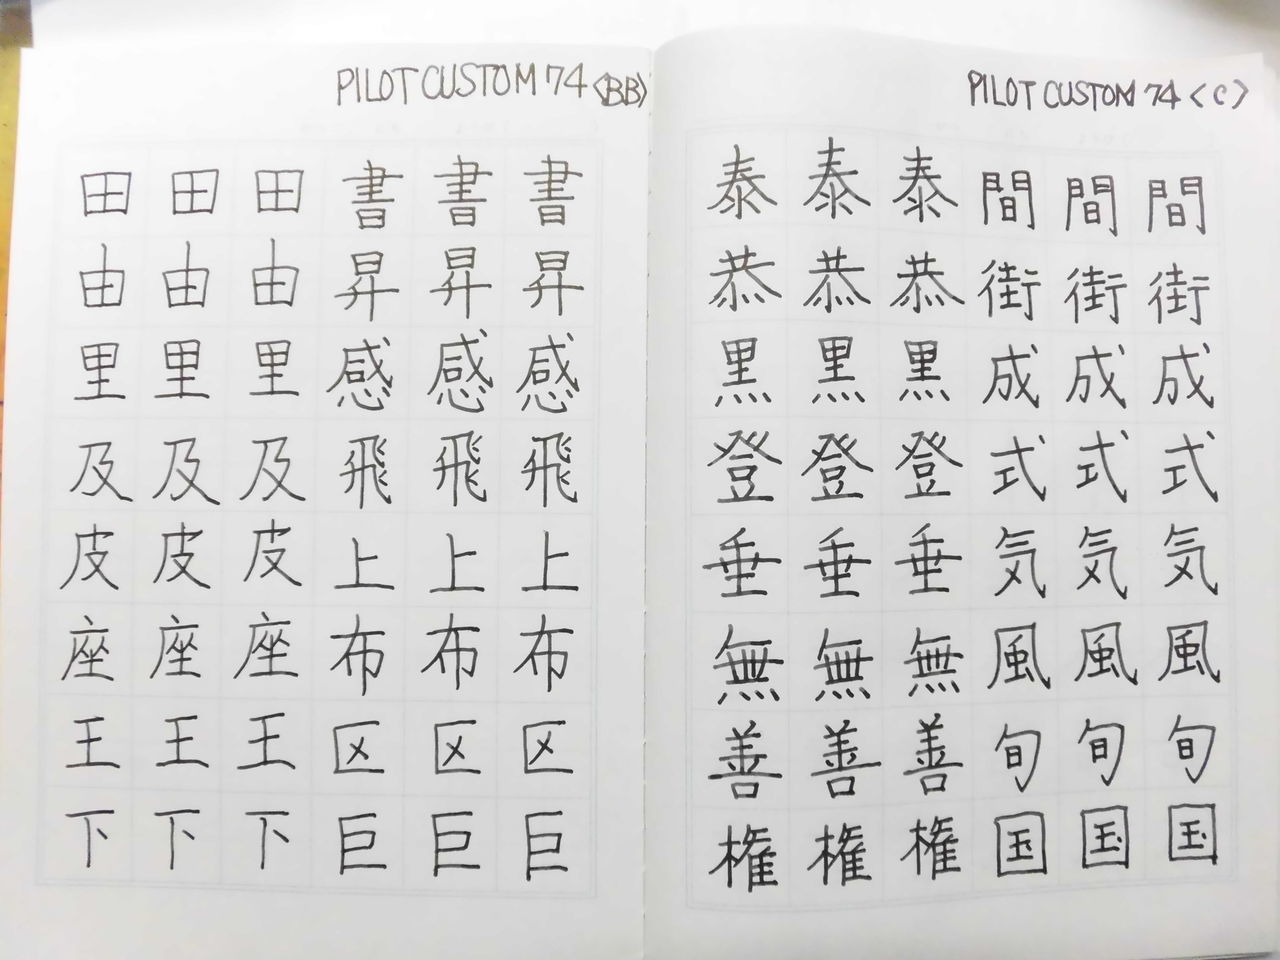 PILOT CUSTOM 74 <BB>
田 田 田 書 書 書
由 由 由 昇 昇 昇
里 里 里 感 感 感
及 及 及 飛 飛 飛
皮 皮 皮 上 上 上
座 座 座 布 布 布
王 王 王 区 区 区
下 下 下 巨 巨 巨
PILOT CUSTOM 74 <C>
泰 泰 泰 間 間 間
恭 恭 恭 街 街 街
黒 黒 黒 成 成 成
登 登 登 式 式 式
垂 垂 垂 気 気 気
無 無 無 風 風 風
善 善 善 旬 旬 旬
権 権 権 国 国 国